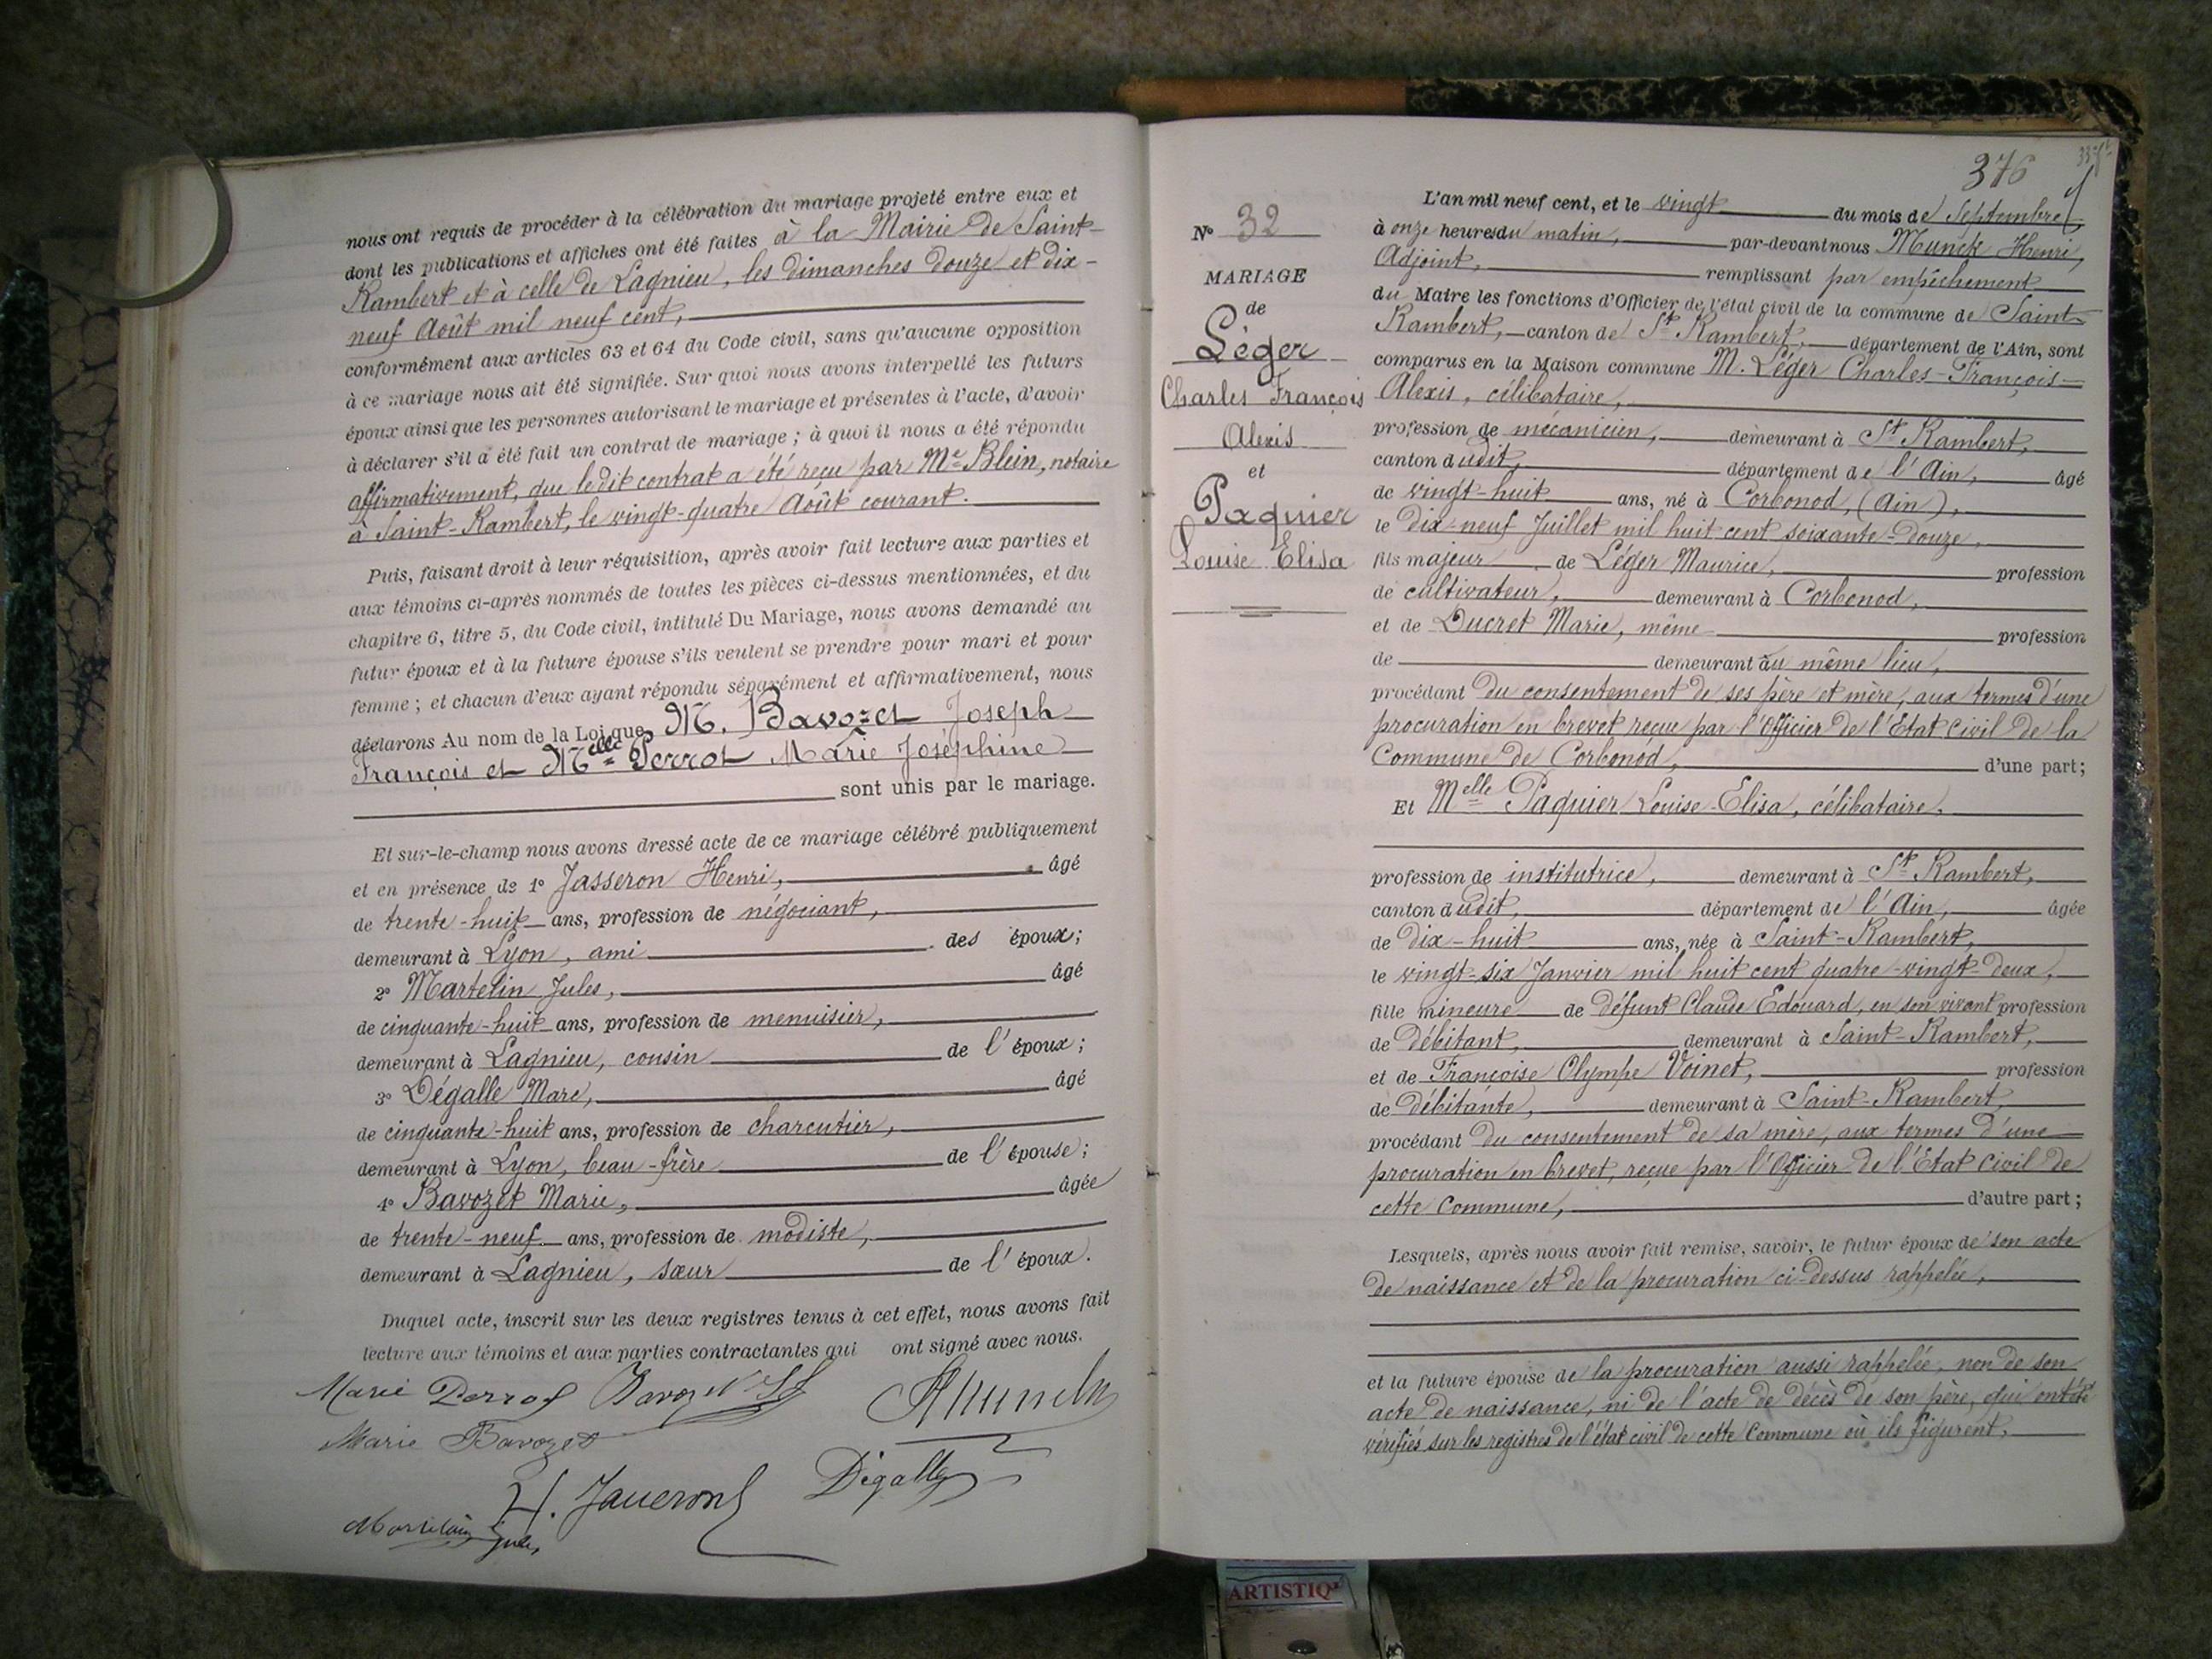 nous ont requis de procéder à la célébration du mariage projeté entre eux et
dont les publications et affiches ont été faites à la Mairie de Saint-
Rambert et à celle de Lagnieu, les dimanches douze et dix-
neuf Août mil neuf cent,
conformément aux articles 63 et 64 du Code civil, sans qu'aucune opposition
à ce mariage nous ait été signifiée. Sur quoi nous avons interpellé les futurs
époux ainsi que les personnes autorisant le mariage et présentes à l'acte, d'avoir
à déclarer s'il a été fait un contrat de mariage ; à quoi il nous a été répondu
affirmativement, que le dit contrat a été reçu par Me Blein, notaire
à Saint-Rambert, le vingt-quatre Août courant.
Puis, faisant droit à leur réquisition, après avoir fait lecture aux parties et
aux témoins ci-après nommés de toutes les pièces ci-dessus mentionnées, et du
chapitre 6, titre 5, du Code civil, intitulé Du Mariage, nous avons demandé au
futur époux et à la future épouse s'ils veulent se prendre pour mari et pour
femme ; et chacun d'eux ayant répondu séparément et affirmativement, nous
déclarons Au nom de la Loi que M. Bavozet Joseph
François et Melle Perrot Marie Joséphine
sont unis par le mariage.
Et sur-le-champ nous avons dressé acte de ce mariage célébré publiquement
et en présence de 1° Jasseron Henri, âgé
de trente-huit ans, profession de négociant,
demeurant à Lyon, ami des époux ;
2° Martelin Jules, âgé
de cinquante-huit ans, profession de menuisier,
demeurant à Lagnieu, cousin de l'époux ;
3° Dégalle Marc, âgé
de cinquante-huit ans, profession de charcutier,
demeurant à Lyon, beau-frère de l'épouse ;
4° Bavozet Marie, âgée
de trente-neuf ans, profession de modiste,
demeurant à Lagnieu, sœur de l'époux.
Duquel acte, inscrit sur les deux registres tenus à cet effet, nous avons fait
lecture aux témoins et aux parties contractantes qui ont signé avec nous.
Marie Perrot Bavozet
Marie Bavozet
H. Jasseron Dégalle
376
N° 32
MARIAGE
de
Léger
Charles François
Alexis
et
Paquier
Louise Elisa
L'an mil neuf cent, et le vingt du mois de Septembre,
à onze heures du matin, par-devant nous Munck Henri,
Adjoint, remplissant par empêchement
du Maire les fonctions d'Officier de l'état civil de la commune de Saint-
Rambert, canton de St Rambert, département de l'Ain, sont
comparus en la Maison commune M. Léger Charles-François-
Alexis, célibataire,
profession de mécanicien, demeurant à St Rambert,
canton dudit, département de l'Ain, âgé
de vingt-huit ans, né à Corbonod, (Ain),
le dix-neuf Juillet mil huit cent soixante-douze,
fils majeur de Léger Maurice, profession
de cultivateur, demeurant à Corbonod,
et de Ducret Marie, même profession
de demeurant au même lieu,
procédant du consentement de ses père et mère, aux termes d'une
procuration en brevet reçue par l'Officier de l'Etat civil de la
Commune de Corbonod, d'une part ;
Et Melle Paquier Louise-Elisa, célibataire,
profession de institutrice, demeurant à St Rambert,
canton dudit, département de l'Ain, âgée
de dix-huit ans, née à Saint-Rambert,
le vingt-six Janvier mil huit cent quatre-vingt-deux,
fille mineure de défunt Claude Edouard, en son vivant profession
de débitant, demeurant à Saint-Rambert,
et de Françoise Olympe Voinet, profession
de débitante, demeurant à Saint-Rambert,
procédant du consentement de sa mère, aux termes d'une
procuration en brevet, reçue par l'Officier de l'Etat civil de
cette Commune, d'autre part ;
Lesquels, après nous avoir fait remise, savoir, le futur époux de son acte
de naissance et de la procuration ci-dessus rappelée,
et la future épouse de la procuration aussi rappelée, non de son
acte de naissance, ni de l'acte de décès de son père, qui ont été
vérifiés sur les registres de l'état civil de cette Commune où ils figurent,
ARTISTIQ